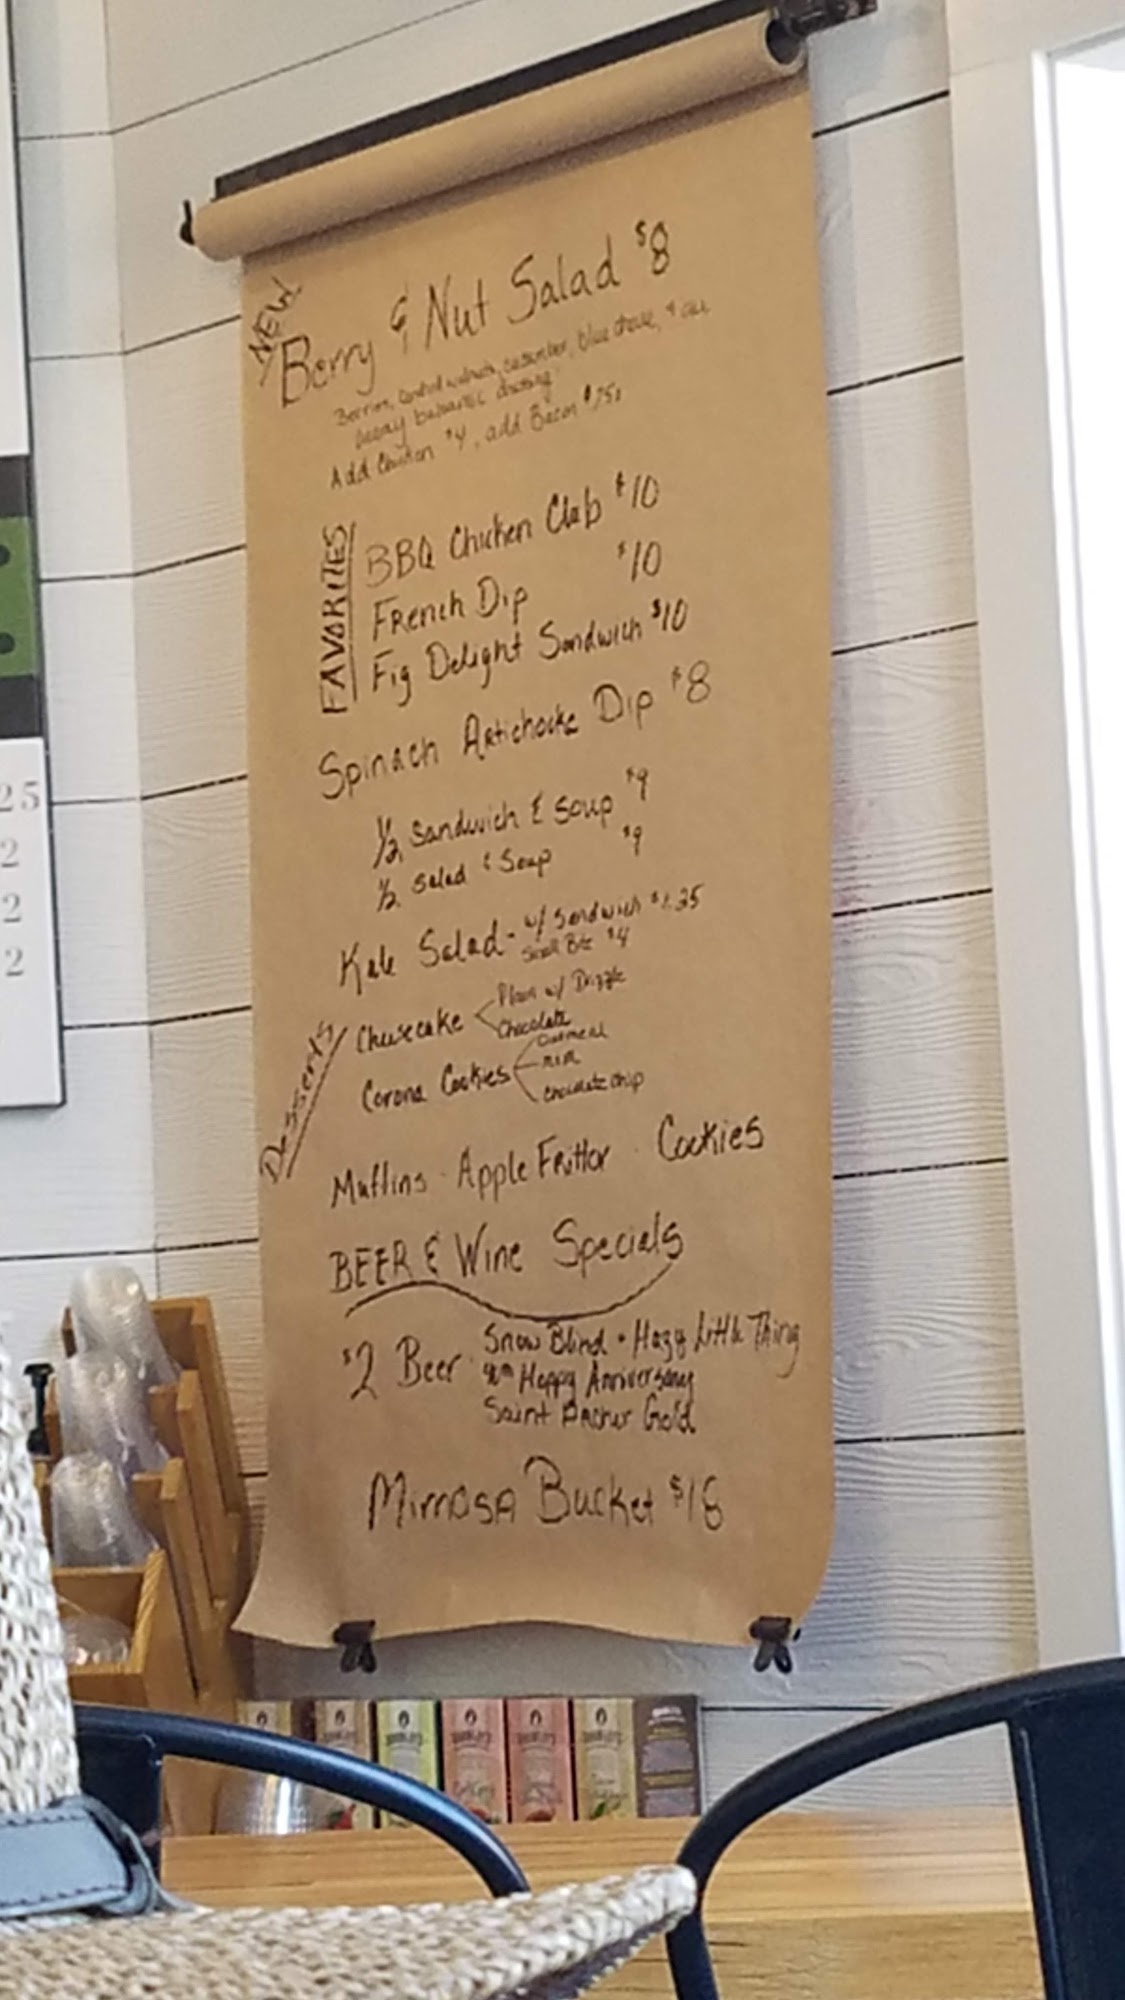 NEW
Berry & Nut Salad $8
Berries, candied walnuts, cucumber, blue cheese, &
balsamic dressing
Add Chicken $4, add Bacon $.75¢
FAVORITES
BBQ Chicken Club $10
French Dip $10
Fig Delight Sandwich $10
Spinach Artichoke Dip $8
1/2 Sandwich & Soup $9
1/2 Salad & Soup $9
Kale Salad - w/ Sandwich
Small Bite $4
Desserts
Cheesecake
Plain w/ Drizzle
Chocolate
Corona Cookies
Oatmeal
Chocolate Chip
Muffins · Apple Frittor · Cookies
BEER & Wine Specials
$2 Beer · Snow Blind · Hazy Little Thing
Happy Anniversary
Saint Archer Gold
Mimosa Bucket $18
25
2
2
2